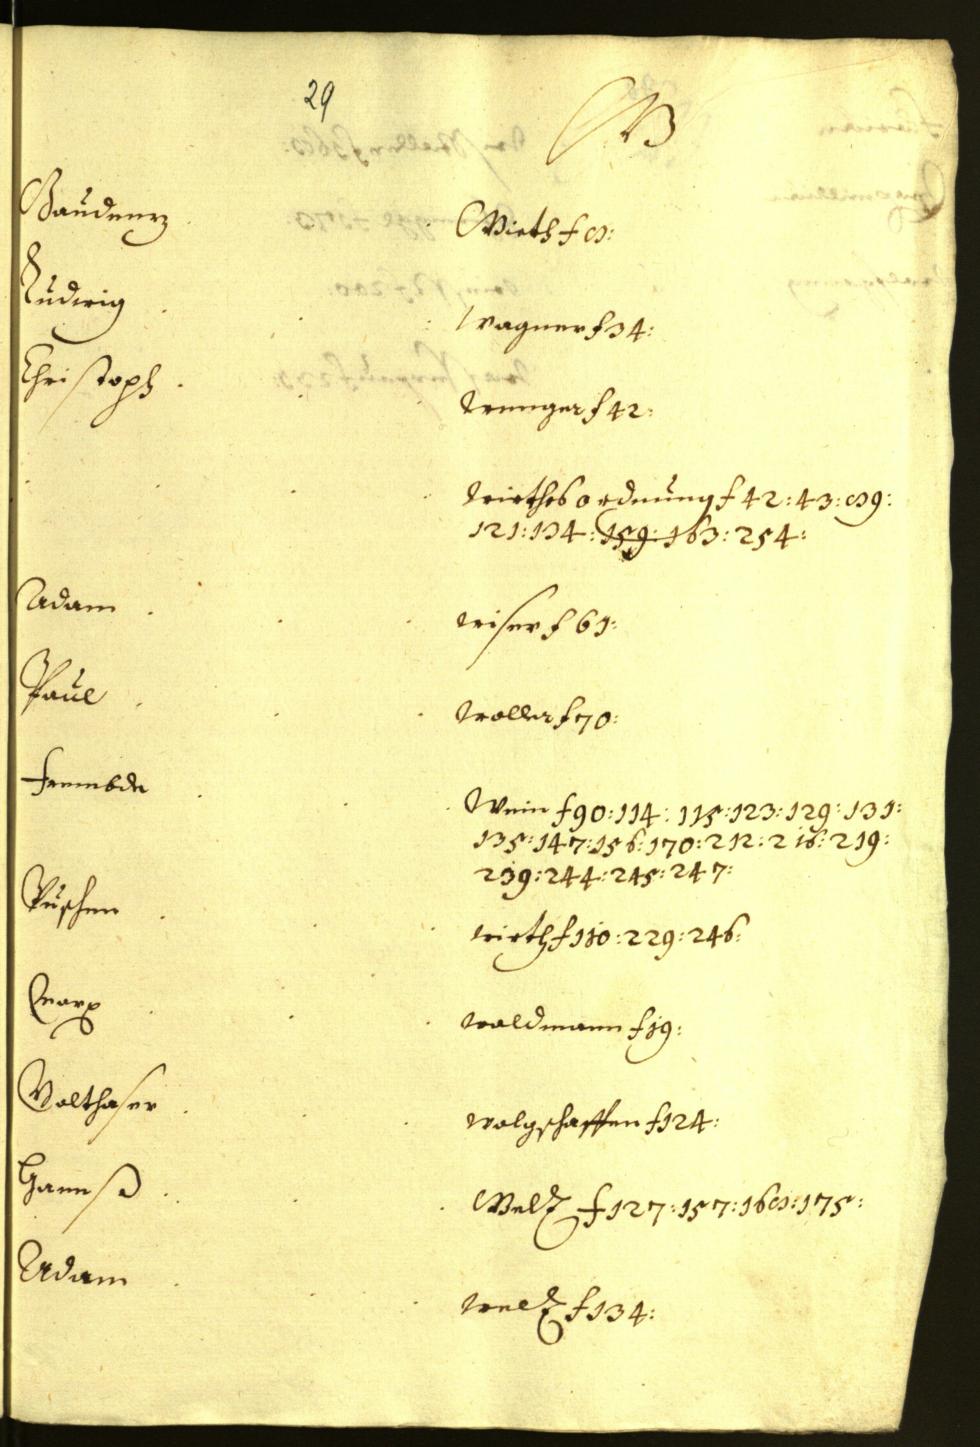 29
W
Gaudenz . . Wirth f 8:
Ludwig . . : Wagner f 34:
Christoph . . wenger f 42:
wirthsordnung f 42: 43: 89:
121: 134: 159: 163: 254:
Adam . . wiser f 61:
Paul . . woller f 70:
frembde . . Wein f 90: 114: 115: 123: 129: 131:
135: 147: 156: 170: 212: 216: 219:
239: 244: 245: 247:
wirth f 110: 229: 246:
Marx . . waldmann f 19:
Balthaser . . wolgschaffen f 124:
Hannß . . Welz f 127: 157: 168: 175:
Adam . . welz f 134: